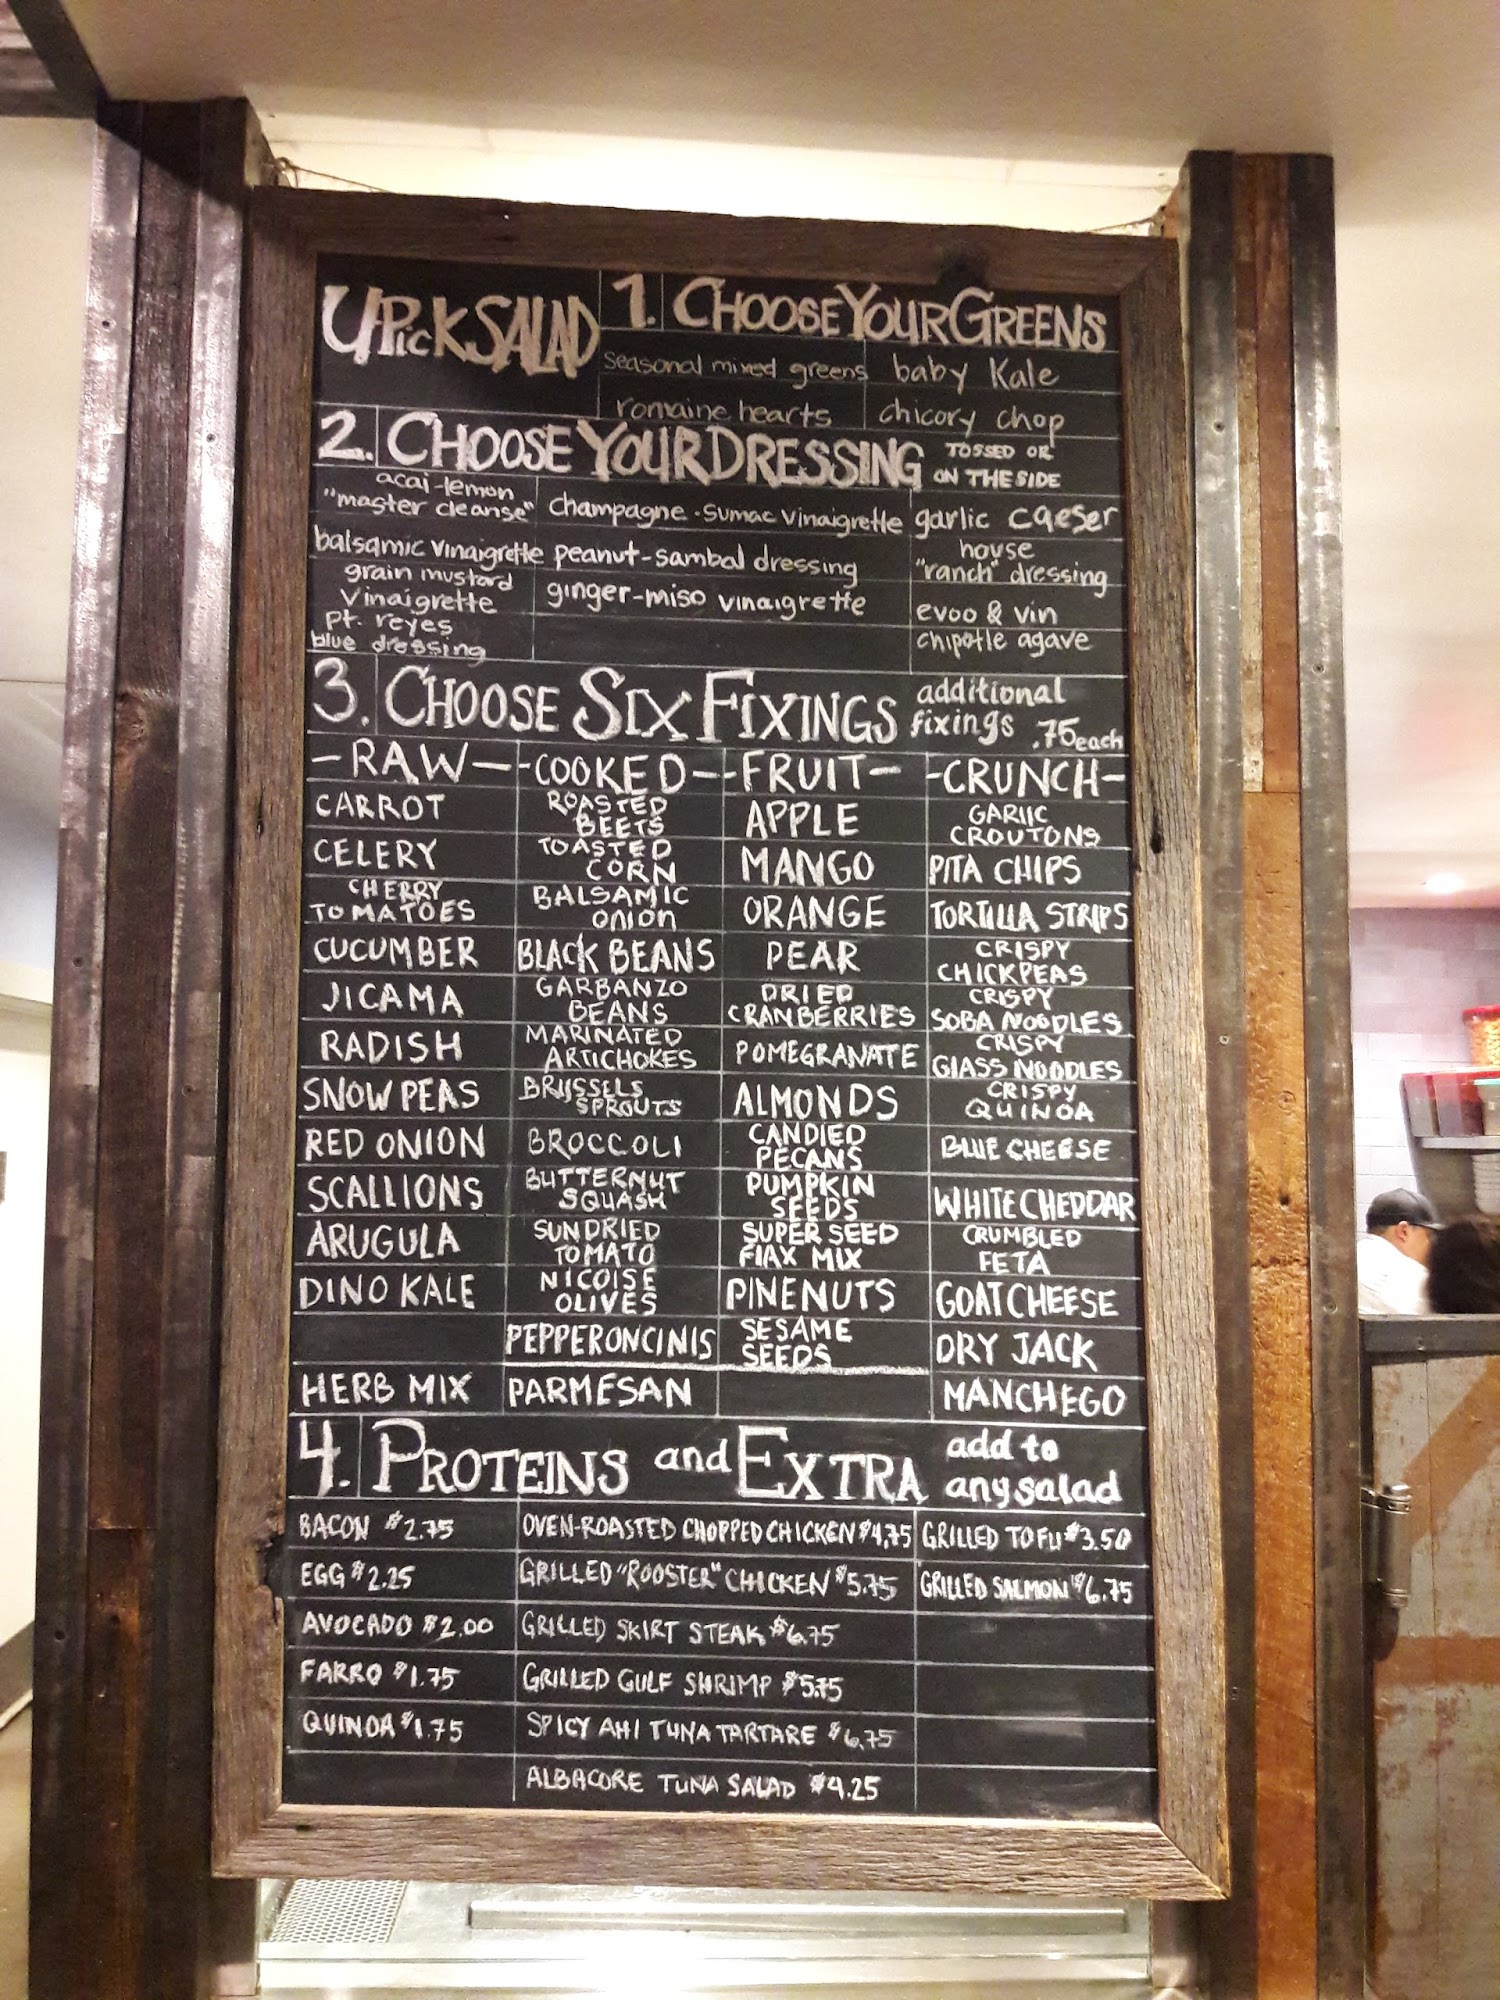 UPick SALAD
1. CHOOSE YOUR GREENS
seasonal mixed greens baby Kale
romaine hearts chicory chop
2. CHOOSE YOUR DRESSING TOSSED OR
ON THE SIDE
acai-lemon
"master cleanse" champagne-sumac vinaigrette garlic caeser
balsamic vinaigrette peanut-sambal dressing house
"ranch" dressing
grain mustard
vinaigrette ginger-miso vinaigrette evoo & vin
pt. reyes
blue dressing chipotle agave
3. CHOOSE SIX FIXINGS additional
fixings .75 each
-RAW- -COOKED- -FRUIT- -CRUNCH-
CARROT ROASTED BEETS APPLE GARLIC CROUTONS
CELERY TOASTED CORN MANGO PITA CHIPS
CHERRY TOMATOES BALSAMIC onion ORANGE TORTILLA STRIPS
CUCUMBER BLACK BEANS PEAR CRISPY CHICKPEAS
JICAMA GARBANZO BEANS DRIED CRANBERRIES CRISPY SOBA NOODLES
RADISH MARINATED ARTICHOKES POMEGRANATE CRISPY GLASS NOODLES
SNOW PEAS BRUSSELS SPROUTS ALMONDS CRISPY QUINOA
RED ONION BROCCOLI CANDIED PECANS BLUE CHEESE
SCALLIONS BUTTERNUT SQUASH PUMPKIN SEEDS WHITE CHEDDAR
ARUGULA SUNDRIED TOMATO SUPER SEED FLAX MIX CRUMBLED FETA
DINO KALE NICOISE OLIVES PINENUTS GOAT CHEESE
PEPPERONCINIS SESAME SEEDS DRY JACK
HERB MIX PARMESAN MANCHEGO
4. PROTEINS and EXTRA add to
any salad
BACON $2.75 OVEN-ROASTED CHOPPED CHICKEN $4.75 GRILLED TOFU $3.50
EGG $2.25 GRILLED "ROOSTER" CHICKEN $5.75 GRILLED SALMON $6.75
AVOCADO $2.00 GRILLED SKIRT STEAK $6.75
FARRO $1.75 GRILLED GULF SHRIMP $5.75
QUINOA $1.75 SPICY AHI TUNA TARTARE $6.75
ALBACORE TUNA SALAD $4.25